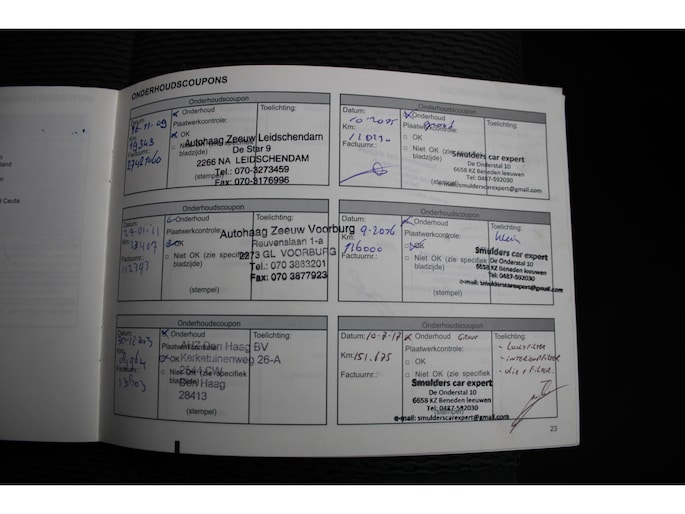 ONDERHOUDSCOUPONS
Onderhoudscoupon
Datum:
16-11-09
Km:
19343
Factuurnr.:
27421060
Onderhoud
Plaatwerkcontrole:
OK
Niet OK (zie specifiek
bladzijde)
(stempel)
Toelichting:
Autohaag Zeeuw Leidschendam
De Star 9
2266 NA LEIDSCHENDAM
Tel.: 070-3273459
Fax: 070-3176996
Onderhoudscoupon
Datum:
10-2015
Km:
Factuurnr.:
Onderhoud
groot
Plaatwerkcontrole:
OK
Niet OK (zie
bladzijde)
(stempel)
Toelichting:
Smulders car expert
De Onderstal 10
6658 KZ Beneden leeuwen
Tel: 0487-592030
e-mail: smulderscarexpert@gmail.com
Onderhoudscoupon
Datum:
24-01-11
Km:
Factuurnr.:
112393
Onderhoud
Plaatwerkcontrole:
OK
Niet OK (zie specifiek
bladzijde)
(stempel)
Toelichting:
Autohaag Zeeuw Voorburg
Reuvenslaan 1-a
2273 GL VOORBURG
Tel.: 070 3883201
Fax: 070 3877923
Onderhoudscoupon
Datum:
9-2016
Km:
136000
Factuurnr.:
Onderhoud
Plaatwerkcontrole:
OK
Niet OK (zie specifiek
bladzijde)
(stempel)
Toelichting:
klein
Smulders car expert
De Onderstal 10
6658 KZ Beneden leeuwen
Tel: 0487-592030
e-mail: smulderscarexpert@gmail.com
Onderhoudscoupon
Datum:
Km:
Factuurnr.:
Onderhoud
Plaatwerkcontrole:
OK
Niet OK (zie specifiek
bladzijde)
(stempel)
Toelichting:
AHZ Den Haag BV
Kerketuinenweg 26-A
2544 CW
Den Haag
28413
Onderhoudscoupon
Datum: 10-7-17
Km: 151.675
Factuurnr.:
Onderhoud Groot
Plaatwerkcontrole:
OK
Niet OK (zie specifiek
bladzijde)
(stempel)
Toelichting:
- Luchtfilter
- interieurfilter
- oliefilter.
Smulders car expert
De Onderstal 10
6658 KZ Beneden leeuwen
Tel: 0487-592030
e-mail: smulderscarexpert@gmail.com
23